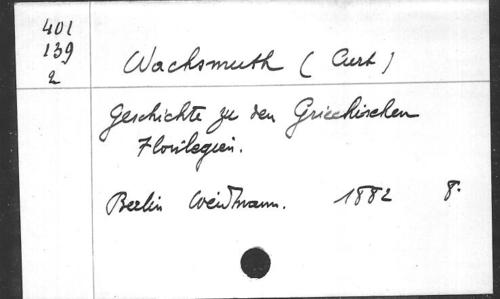 401
139
2
Wachsmuth ( Curt )
Geschichte zu den Griechischen
Florilegien.
Berlin Weidmann. 1882 8.